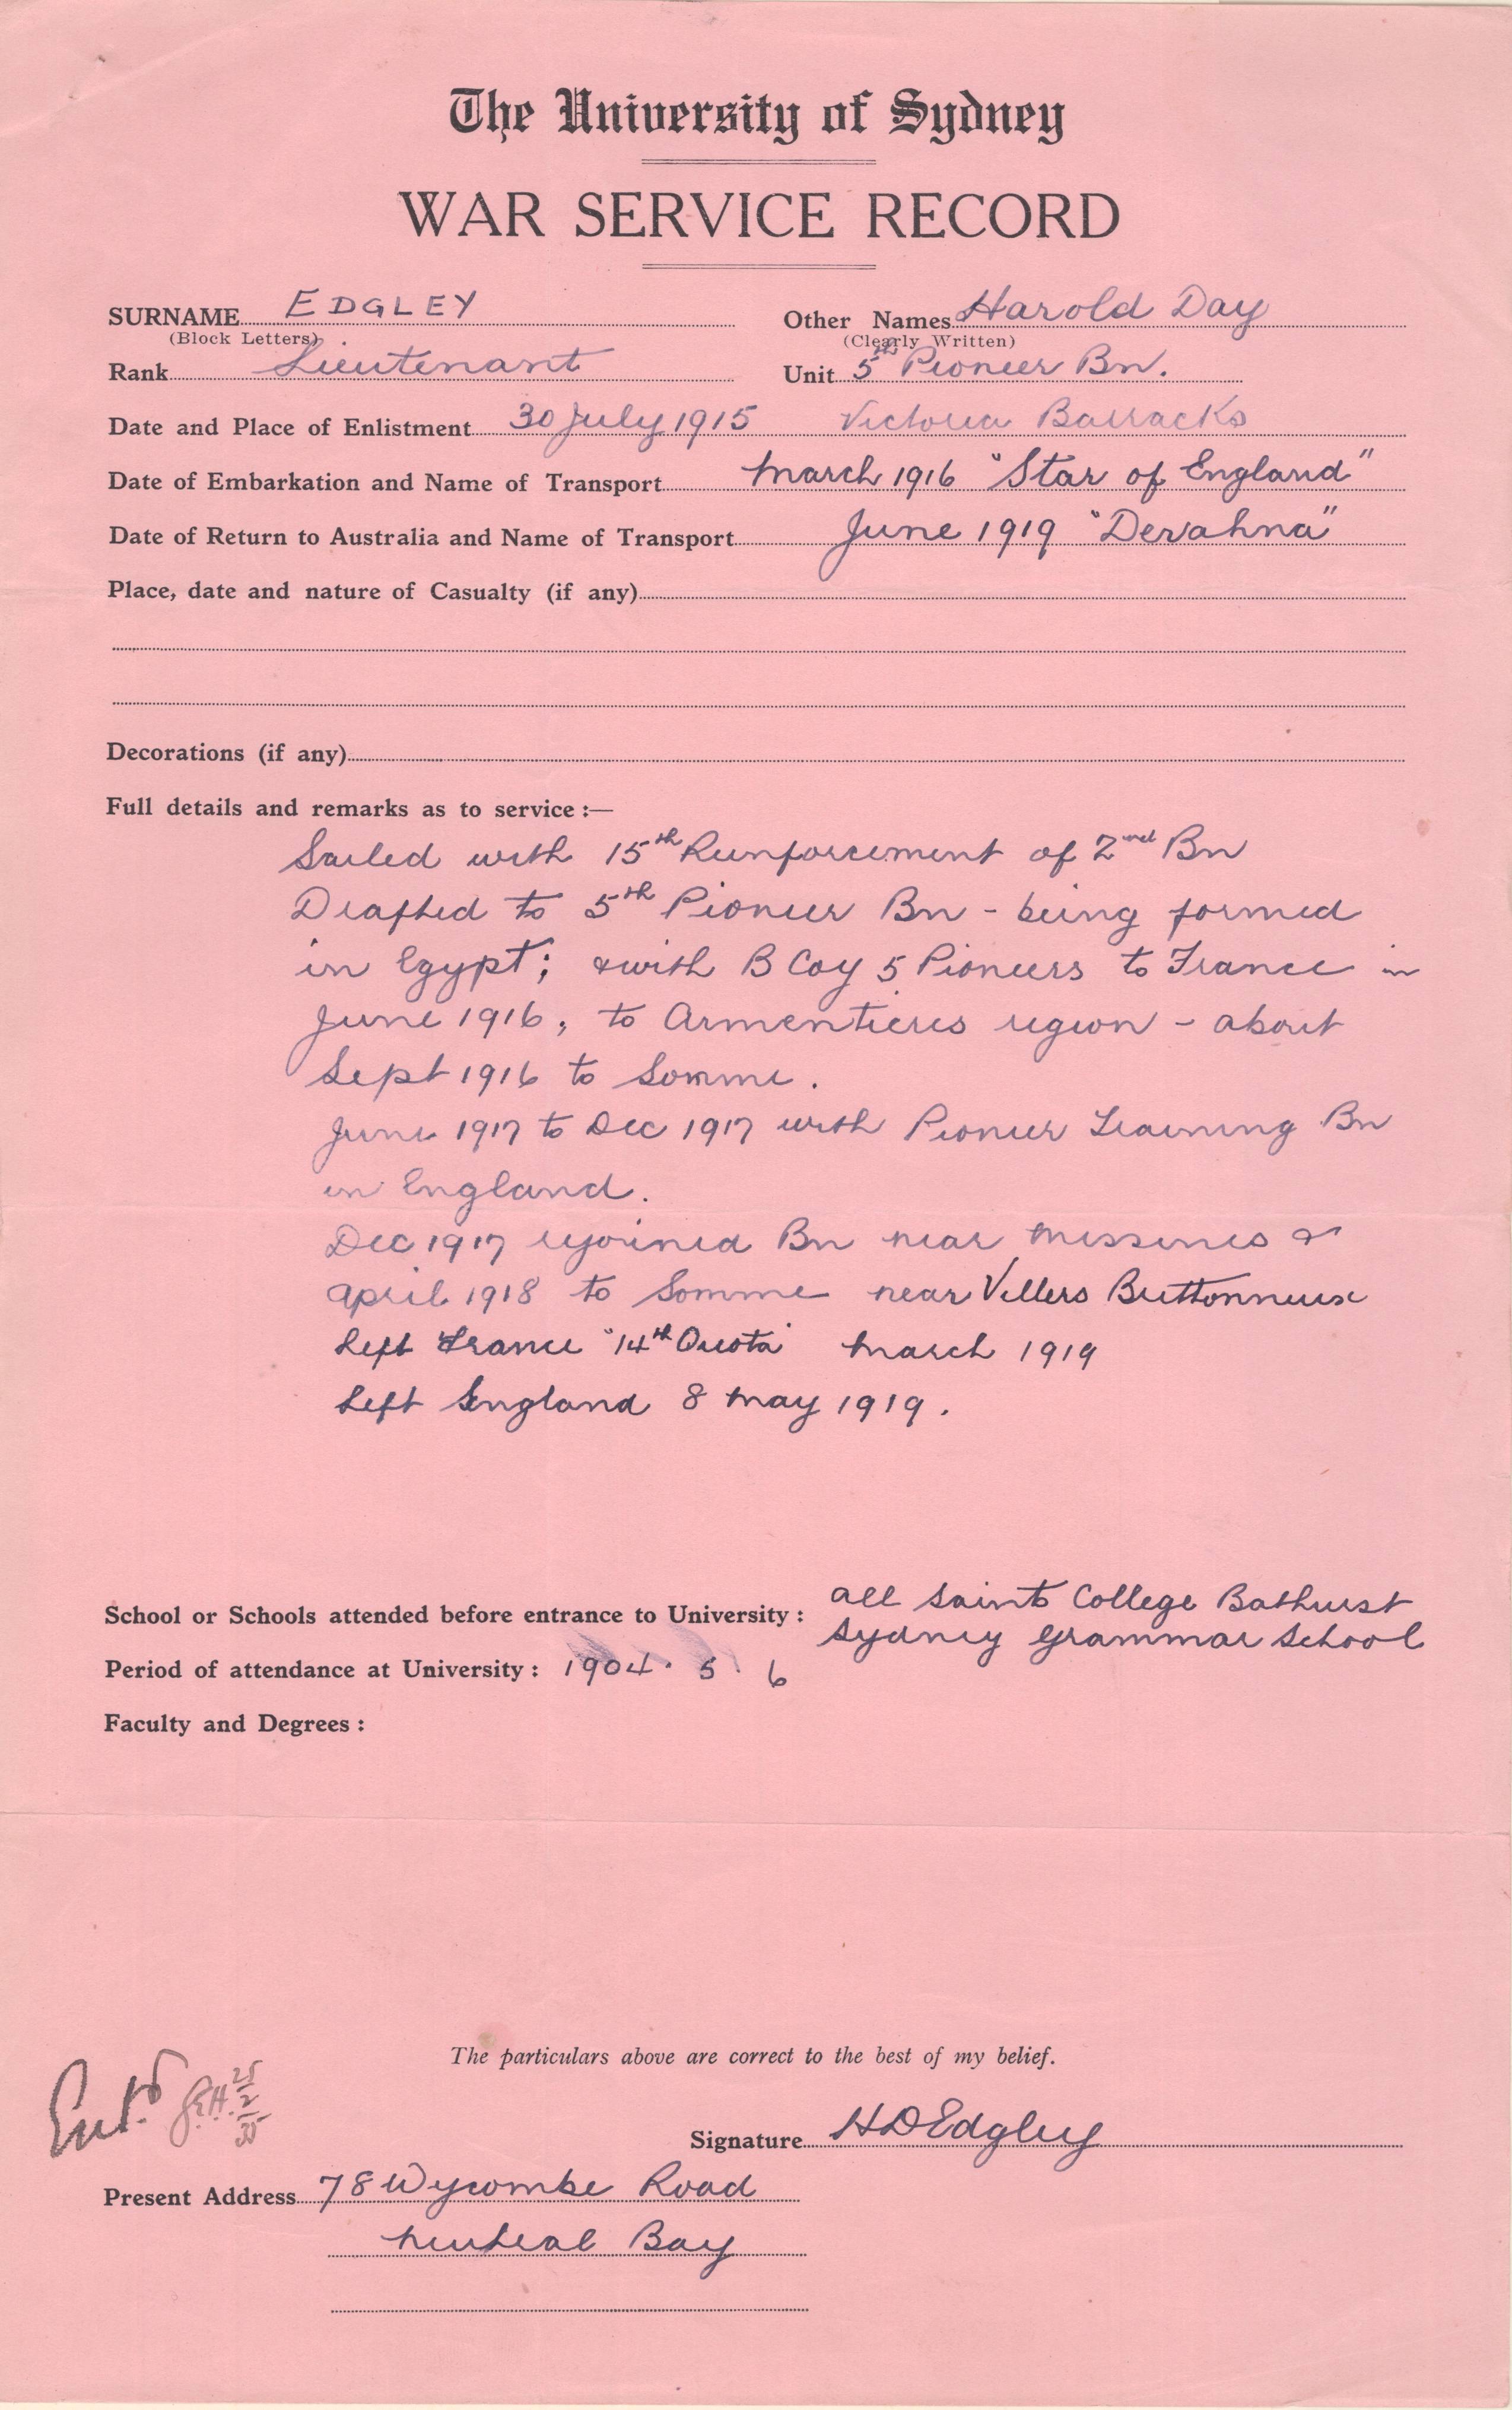 The University of Sydney
WAR SERVICE RECORD
SURNAME EDGLEY Other Names Harold Day
(Block Letters) (Clearly Written)
Rank Lieutenant Unit 5th Pioneer Bn.
Date and Place of Enlistment 30 July 1915 Victoria Barracks
Date of Embarkation and Name of Transport March 1916 "Star of England"
Date of Return to Australia and Name of Transport June 1919 "Devahna"
Place, date and nature of Casualty (if any)
Decorations (if any)
Full details and remarks as to service :—
Sailed with 15th Reinforcement of 2nd Bn
Drafted to 5th Pioneer Bn - being formed
in Egypt; & with B Coy 5 Pioneers to France in
June 1916, to Armentieres region - about
Sept 1916 to Somme.
June 1917 to Dec 1917 with Pioneer Training Bn
in England.
Dec 1917 rejoined Bn near Messines &
April 1918 to Somme near Villers Buttonneux
Left France "14th Quota" March 1919
Left England 8 May 1919.
School or Schools attended before entrance to University : All Saints College Bathurst
Sydney Grammar School
Period of attendance at University : 1904. 5. 6
Faculty and Degrees :
The particulars above are correct to the best of my belief.
Ent.d 25/2/35
Signature HD Edgley
Present Address 78 Wycombe Road
Neutral Bay